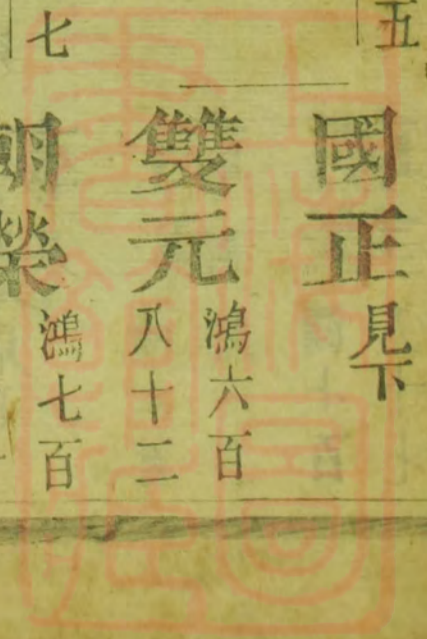 五
國正
見下
雙元
鴻六百
八十二
七
朝榮
鴻七百